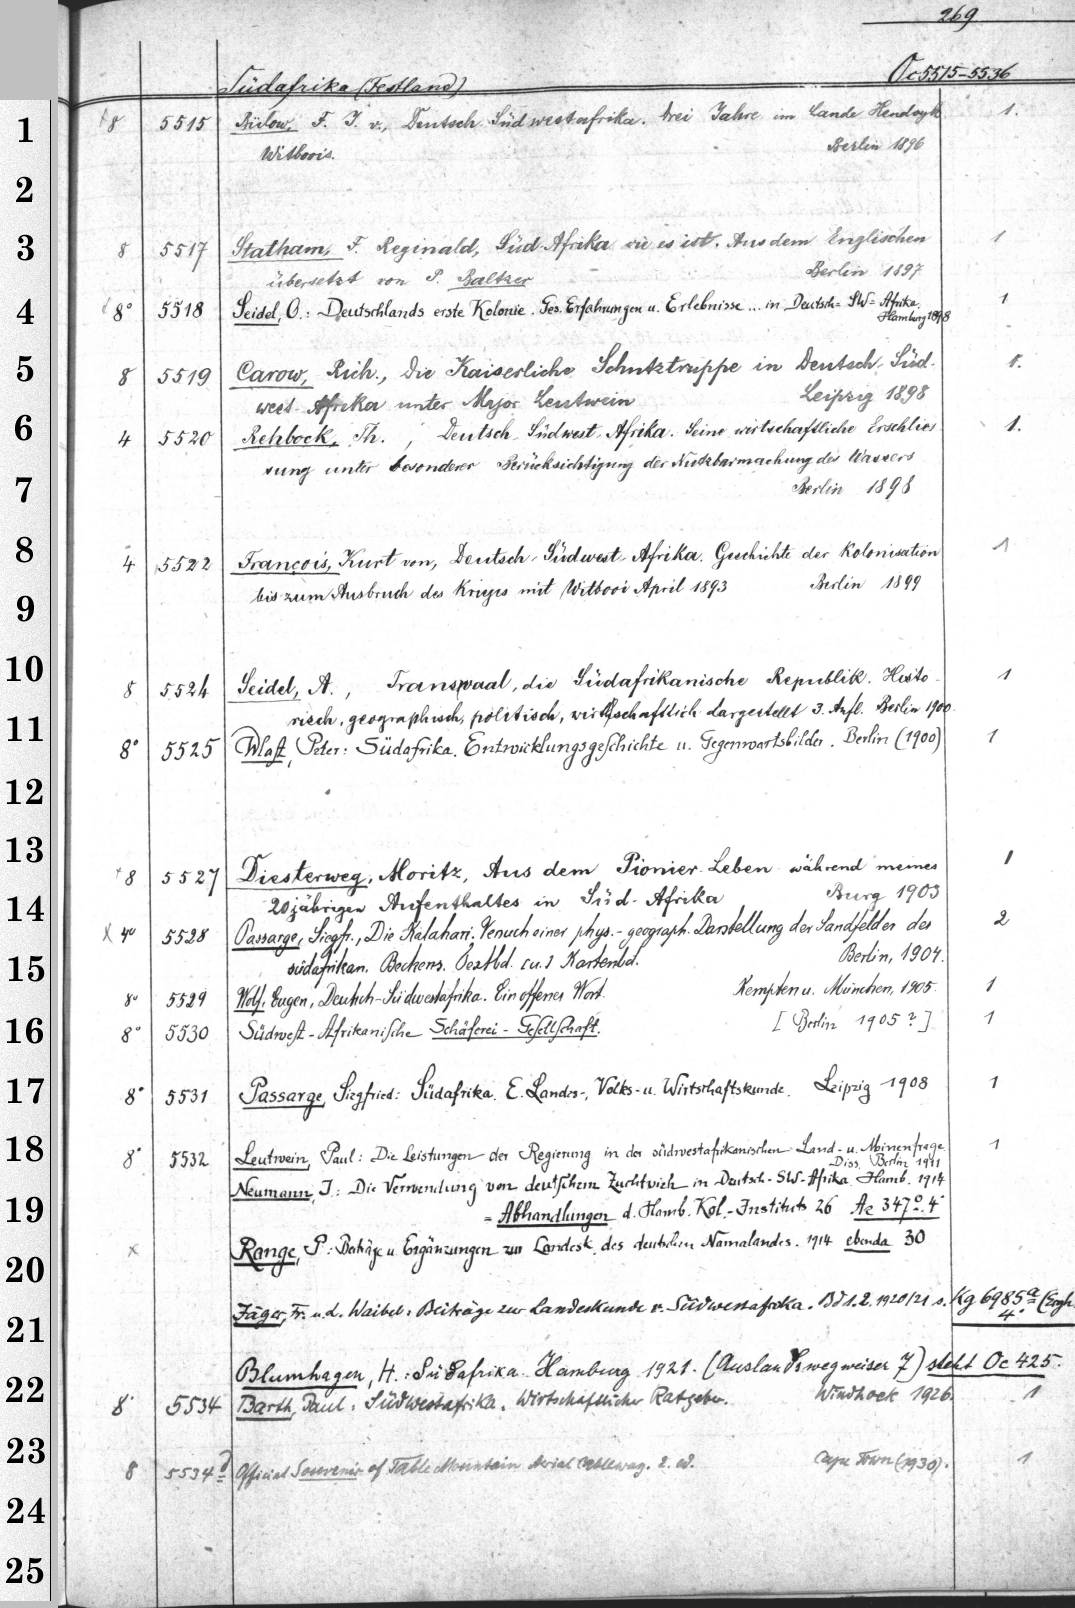 269
Oc 5515-5536
Südafrika (Festland)
1
8 5515 Bülow, F. J. v., Deutsch Südwestafrika. Drei Jahre im Lande Hendryk 1.
Witboois. Berlin 1896
2
3
8 5517 Statham, F. Reginald, Süd Afrika wie es ist. Aus dem Englischen 1
übersetzt von P. Baltzer Berlin 1897
4
8° 5518 Seidel, O.: Deutschlands erste Kolonie. Ges. Erfahrungen u. Erlebnisse ... in Deutsch= SW= Afrika. 1
Hamburg 1898
5
8 5519 Carow, Rich., Die Kaiserliche Schutztruppe in Deutsch-Süd- 1.
west-Afrika unter Major Leutwein Leipzig 1898
6
4 5520 Rehbock, Th., Deutsch-Südwest-Afrika. Seine wirtschaftliche Erschlies 1.
sung unter besonderer Berücksichtigung der Nutzbarmachung des Wassers
7
Berlin 1898
8
4 5522 François, Kurt von, Deutsch-Südwest-Afrika. Geschichte der Kolonisation 1
bis zum Ausbruch des Krieges mit Witbooi April 1893 Berlin 1899
9
10
8 5524 Seidel, A., Transvaal, die Südafrikanische Republik. Histo- 1
risch, geographisch, politisch, wirtschaftlich dargestellt 3. Aufl. Berlin 1900.
11
8° 5525 Wlast, Peter: Südafrika. Entwicklungsgeschichte u. Gegenwartsbilder. Berlin (1900) 1
12
13
8 5527 Diesterweg, Moritz, Aus dem Pionier-Leben während meines 1
14
20jährigen Aufenthaltes in Süd-Afrika Burg 1903
x 4° 5528 Passarge, Siegfr., Die Kalahari. Versuch einer phys.-geograph. Darstellung der Sandfelder des 2
15
südafrikan. Beckens. Textbd. [u.] Kartenbd. Berlin, 1904.
8° 5529 Wolf, Eugen, Deutsch-Südwestafrika. Ein offenes Wort. Kempten u. München, 1905. 1
16
8° 5530 Südwest-Afrikanische Schäferei-Gesellschaft. [Berlin 1905?] 1
17
8° 5531 Passarge, Siegfried: Südafrika. E. Landes-, Volks- u. Wirtschaftskunde. Leipzig 1908 1
18
8° 5532 Leutwein, Paul: Die Leistungen der Regierung in der südwestafrikanischen Land- u. Minenfrage 1
Diss. Berlin 1911
Neumann, J.: Die Verwendung von deutschem Zuchtvieh in Deutsch-SW-Afrika. Hamb. 1914
19
= Abhandlungen d. Hamb. Kol.-Instituts 26 Ae 347° 4°
x Range, P.: Beiträge u. Ergänzungen zur Landesk. des deutschen Namalandes. 1914 ebenda 30
20
Jäger, Fr. u. L. Waibel: Beiträge zur Landeskunde v. Südwestafrika. Bd 1.2. 1920/21 s. Kg 6985a
4°
21
Blumhagen, H.: Südafrika. Hamburg 1921. (Auslandswegweiser 7) steht Oc 425.
22
8° 5534 Barth, Paul: Südwestafrika. Wirtschaftlicher Ratgeber. Windhoek 1926. 1
23
8 5534 Official Souvenir of Table Mountain Aerial Cableway. 2. ed. Cape Town (1930). 1
24
25